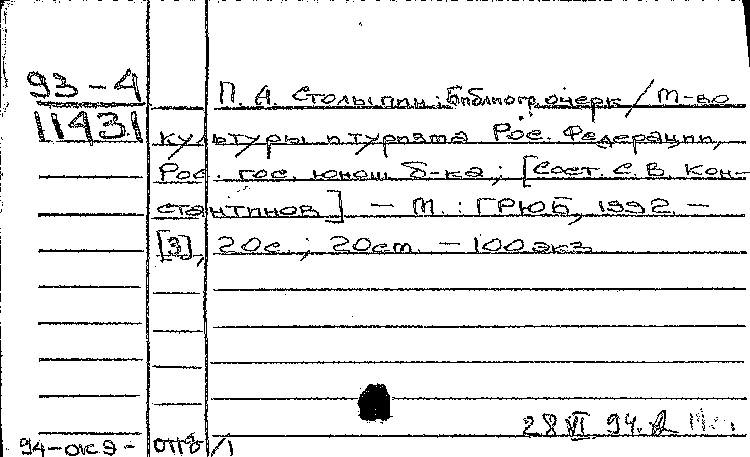 93-4
11431
П. А. Столыпин: Библиогр. очерк / М-во
культуры и туризма Рос. Федерации,
Рос. гос. юнош. б-ка; [Сост. С. В. Кон-
стантинов] — М.: ГРЮБ, 1992. —
[3], 20с.; 20см. — 100 экз
28 VI 94.
94-окэ- 0118/1